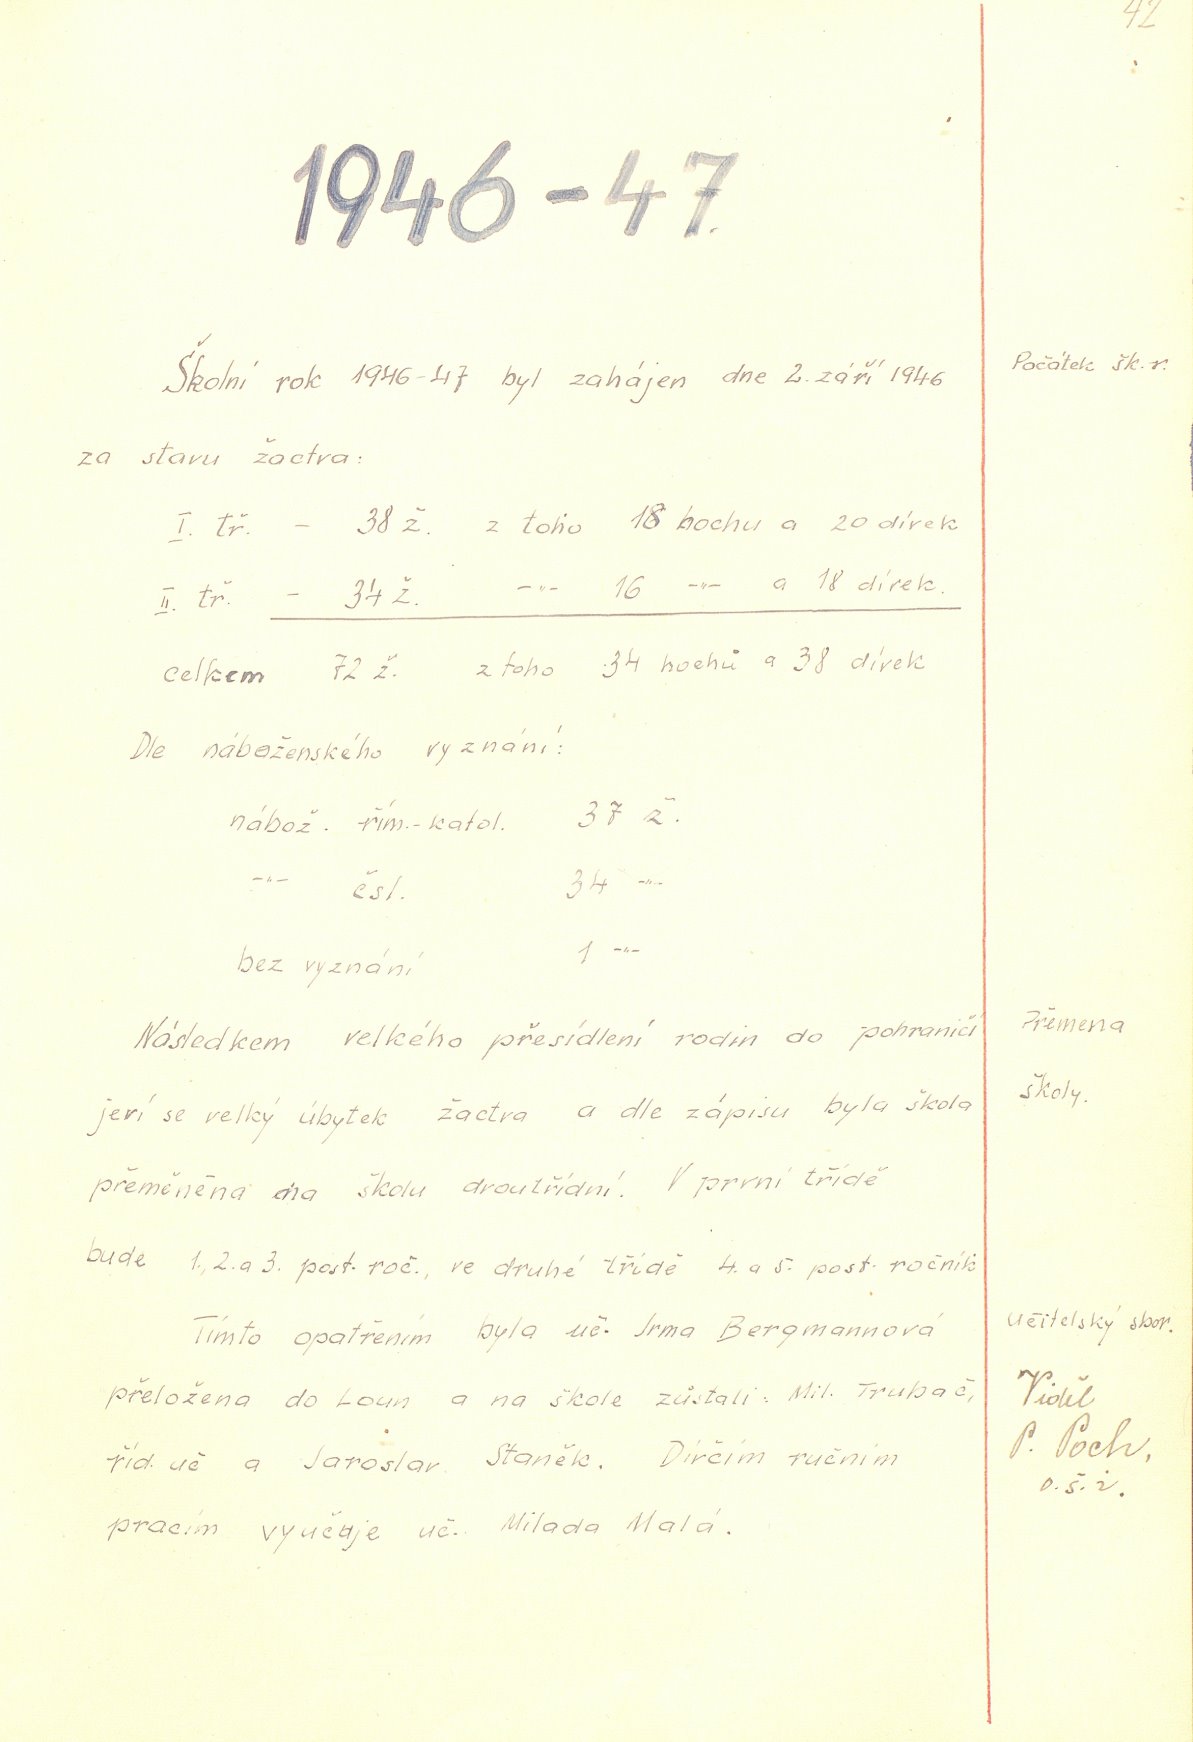 42
1946-47.
Školní rok 1946-47 byl zahájen dne 2. září 1946
Počátek šk. r.
za stavu žactva:
I. tř. - 38 ž. z toho 18 hochu a 20 dívek
II. tř. - 34 ž. -"- 16 -"- a 18 dívek.
celkem 72 ž. z toho 34 hochů a 38 dívek
Dle náboženského vyznání:
nábož. řím.-katol. 37 ž.
-"- čsl. 34 -"-
bez vyznání 1 -"-
Následkem velkého přesídlení rodin do pohraničí
Přěmena
jeví se velký úbytek žactva a dle zápisu byla škola
školy.
přeměněna na školu dvoutřídní. V první třídě
bude 1., 2. a 3. post. roč., ve druhé třídě 4. a 5. post. ročník
Tímto opatřením byla uč. Irma Bergmannová
Učitelský sbor.
přeložena do Loun a na škole zůstali: Mil. Trubač,
Viděl
říd. uč a Jaroslav Staněk. Dívčím ručním
P. Poch,
o. š. i.
pracím vyučuje uč. Milada Malá.